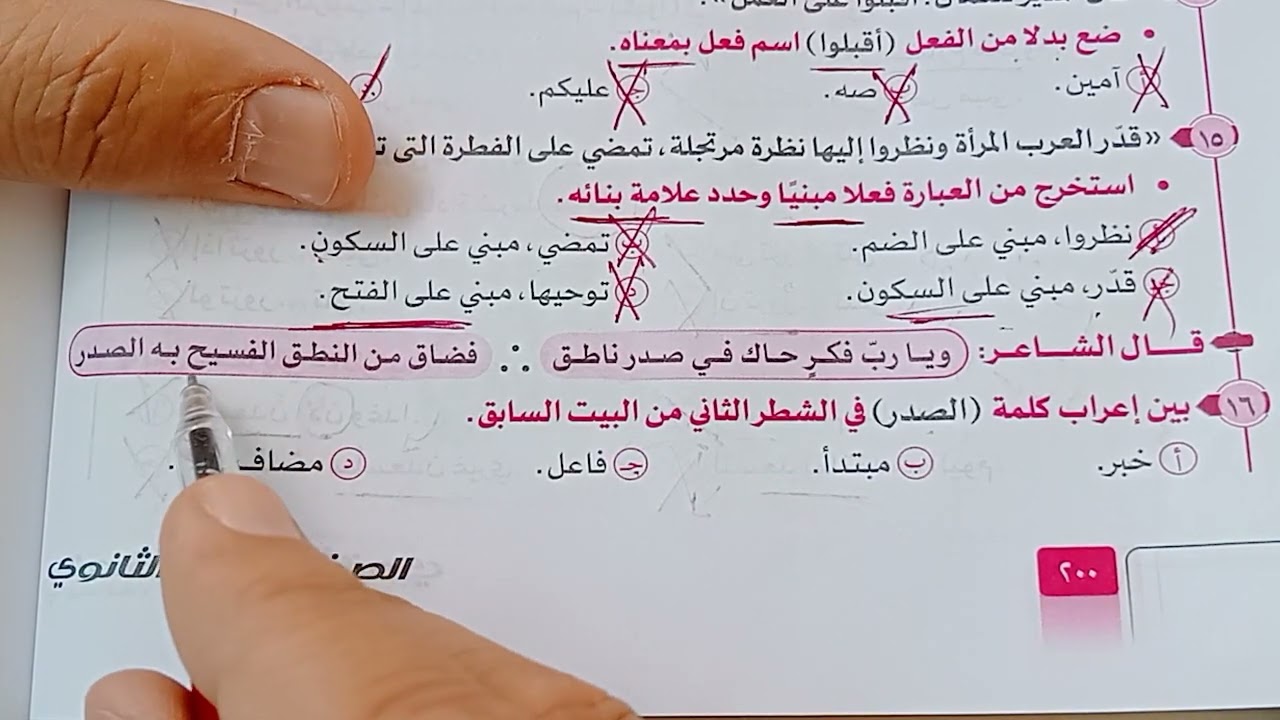 • ضع بدلا من الفعل (أقبلوا) اسم فعل بمعناه.
أ آمين. ب صه. ج عليكم.
١٥ «قدّر العرب المرأة ونظروا إليها نظرة مرتجلة، تمضي على الفطرة التى
• استخرج من العبارة فعلا مبنيًا وحدد علامة بنائه.
أ نظروا، مبني على الضم. ب تمضي، مبني على السكون.
جـ قدّر، مبني على السكون. د توحيها، مبني على الفتح.
قال الشاعر: ويا ربّ فكرٍ حاك في صدر ناطق ∴ فضاق من النطق الفسيح به الصدر
١٦ بين إعراب كلمة (الصدر) في الشطر الثاني من البيت السابق.
أ خبر. ب مبتدأ. جـ فاعل. د مضاف
الثانوي
٢٠٠